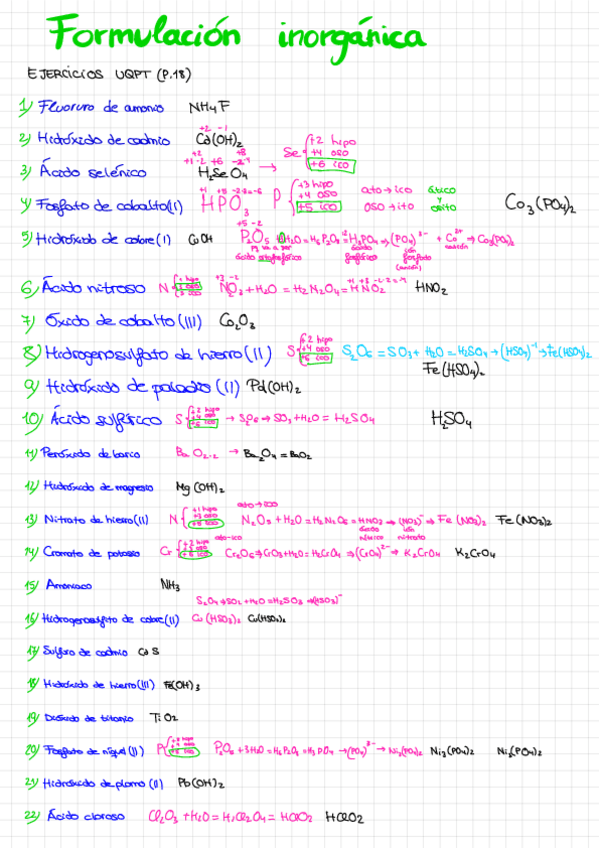 Formulación inorgánica
EJERCICIOS UQPT (P.18)
1) Fluoruro de amonio NH4F
2) Hidróxido de cadmio Cd(OH)2
3) Ácido selénico H2SeO4 → Se +2 hipo +4 oso +6 ico
4) Fosfato de cobalto(II) HPO3 P +3 hipo +4 oso +5 ico ato→ico oso→ito ático y osito Co3(PO4)2
5) Hidróxido de cobre(I) CuOH P2O5 + 3H2O = H6P2O8 = H3PO4 → (PO4)3- + Co2+ → Co3(PO4)2
ácido fosfórico ión fosfato
6) Ácido nitroso N +1 hipo +3 oso +5 ico N2O3 + H2O = H2N2O4 = HNO2 HNO2
7) Óxido de cobalto (III) Co2O3
8) Hidrogenosulfato de hierro (II) S +2 hipo +4 oso +6 ico S2O6 = SO3 + H2O = H2SO4 → (HSO4)-1 → Fe(HSO4)2
Fe(HSO4)2
9) Hidróxido de paladio (II) Pd(OH)2
10) Ácido sulfúrico S +2 hipo +4 oso +6 ico → S2O6 → SO3 + H2O = H2SO4 H2SO4
11) Peróxido de bario Ba O2-2 → Ba2O4 = BaO2
12) Hidróxido de magnesio Mg(OH)2
13) Nitrato de hierro(II) N +1 hipo +3 oso +5 ico ato→ico N2O5 + H2O = H2N2O6 = HNO3 → (NO3)- → Fe(NO3)2 Fe(NO3)2
ácido nítrico ión nitrato
14) Cromato de potasio Cr +2 hipo +4 oso +6 ico ato-ico Cr2O6 → CrO3 + H2O = H2CrO4 → (CrO4)2- → K2CrO4 K2CrO4
15) Amoniaco NH3
S2O4 → SO2 + H2O = H2SO3 → (HSO3)-
16) Hidrogenosulfito de cobre(II) Cu(HSO3)2 Cu(HSO3)2
17) Sulfuro de cadmio CdS
18) Hidróxido de hierro(III) Fe(OH)3
19) Dióxido de titanio TiO2
20) Fosfato de níquel (II) P +1 hipo +3 oso +5 ico P2O5 + 3H2O = H6P2O8 = H3PO4 → (PO4)3- → Ni3(PO4)2 Ni3(PO4)2 Ni3(PO4)2
21) Hidróxido de plomo (II) Pb(OH)2
22) Ácido cloroso Cl2O3 + H2O = H2Cl2O4 = HClO2 HClO2